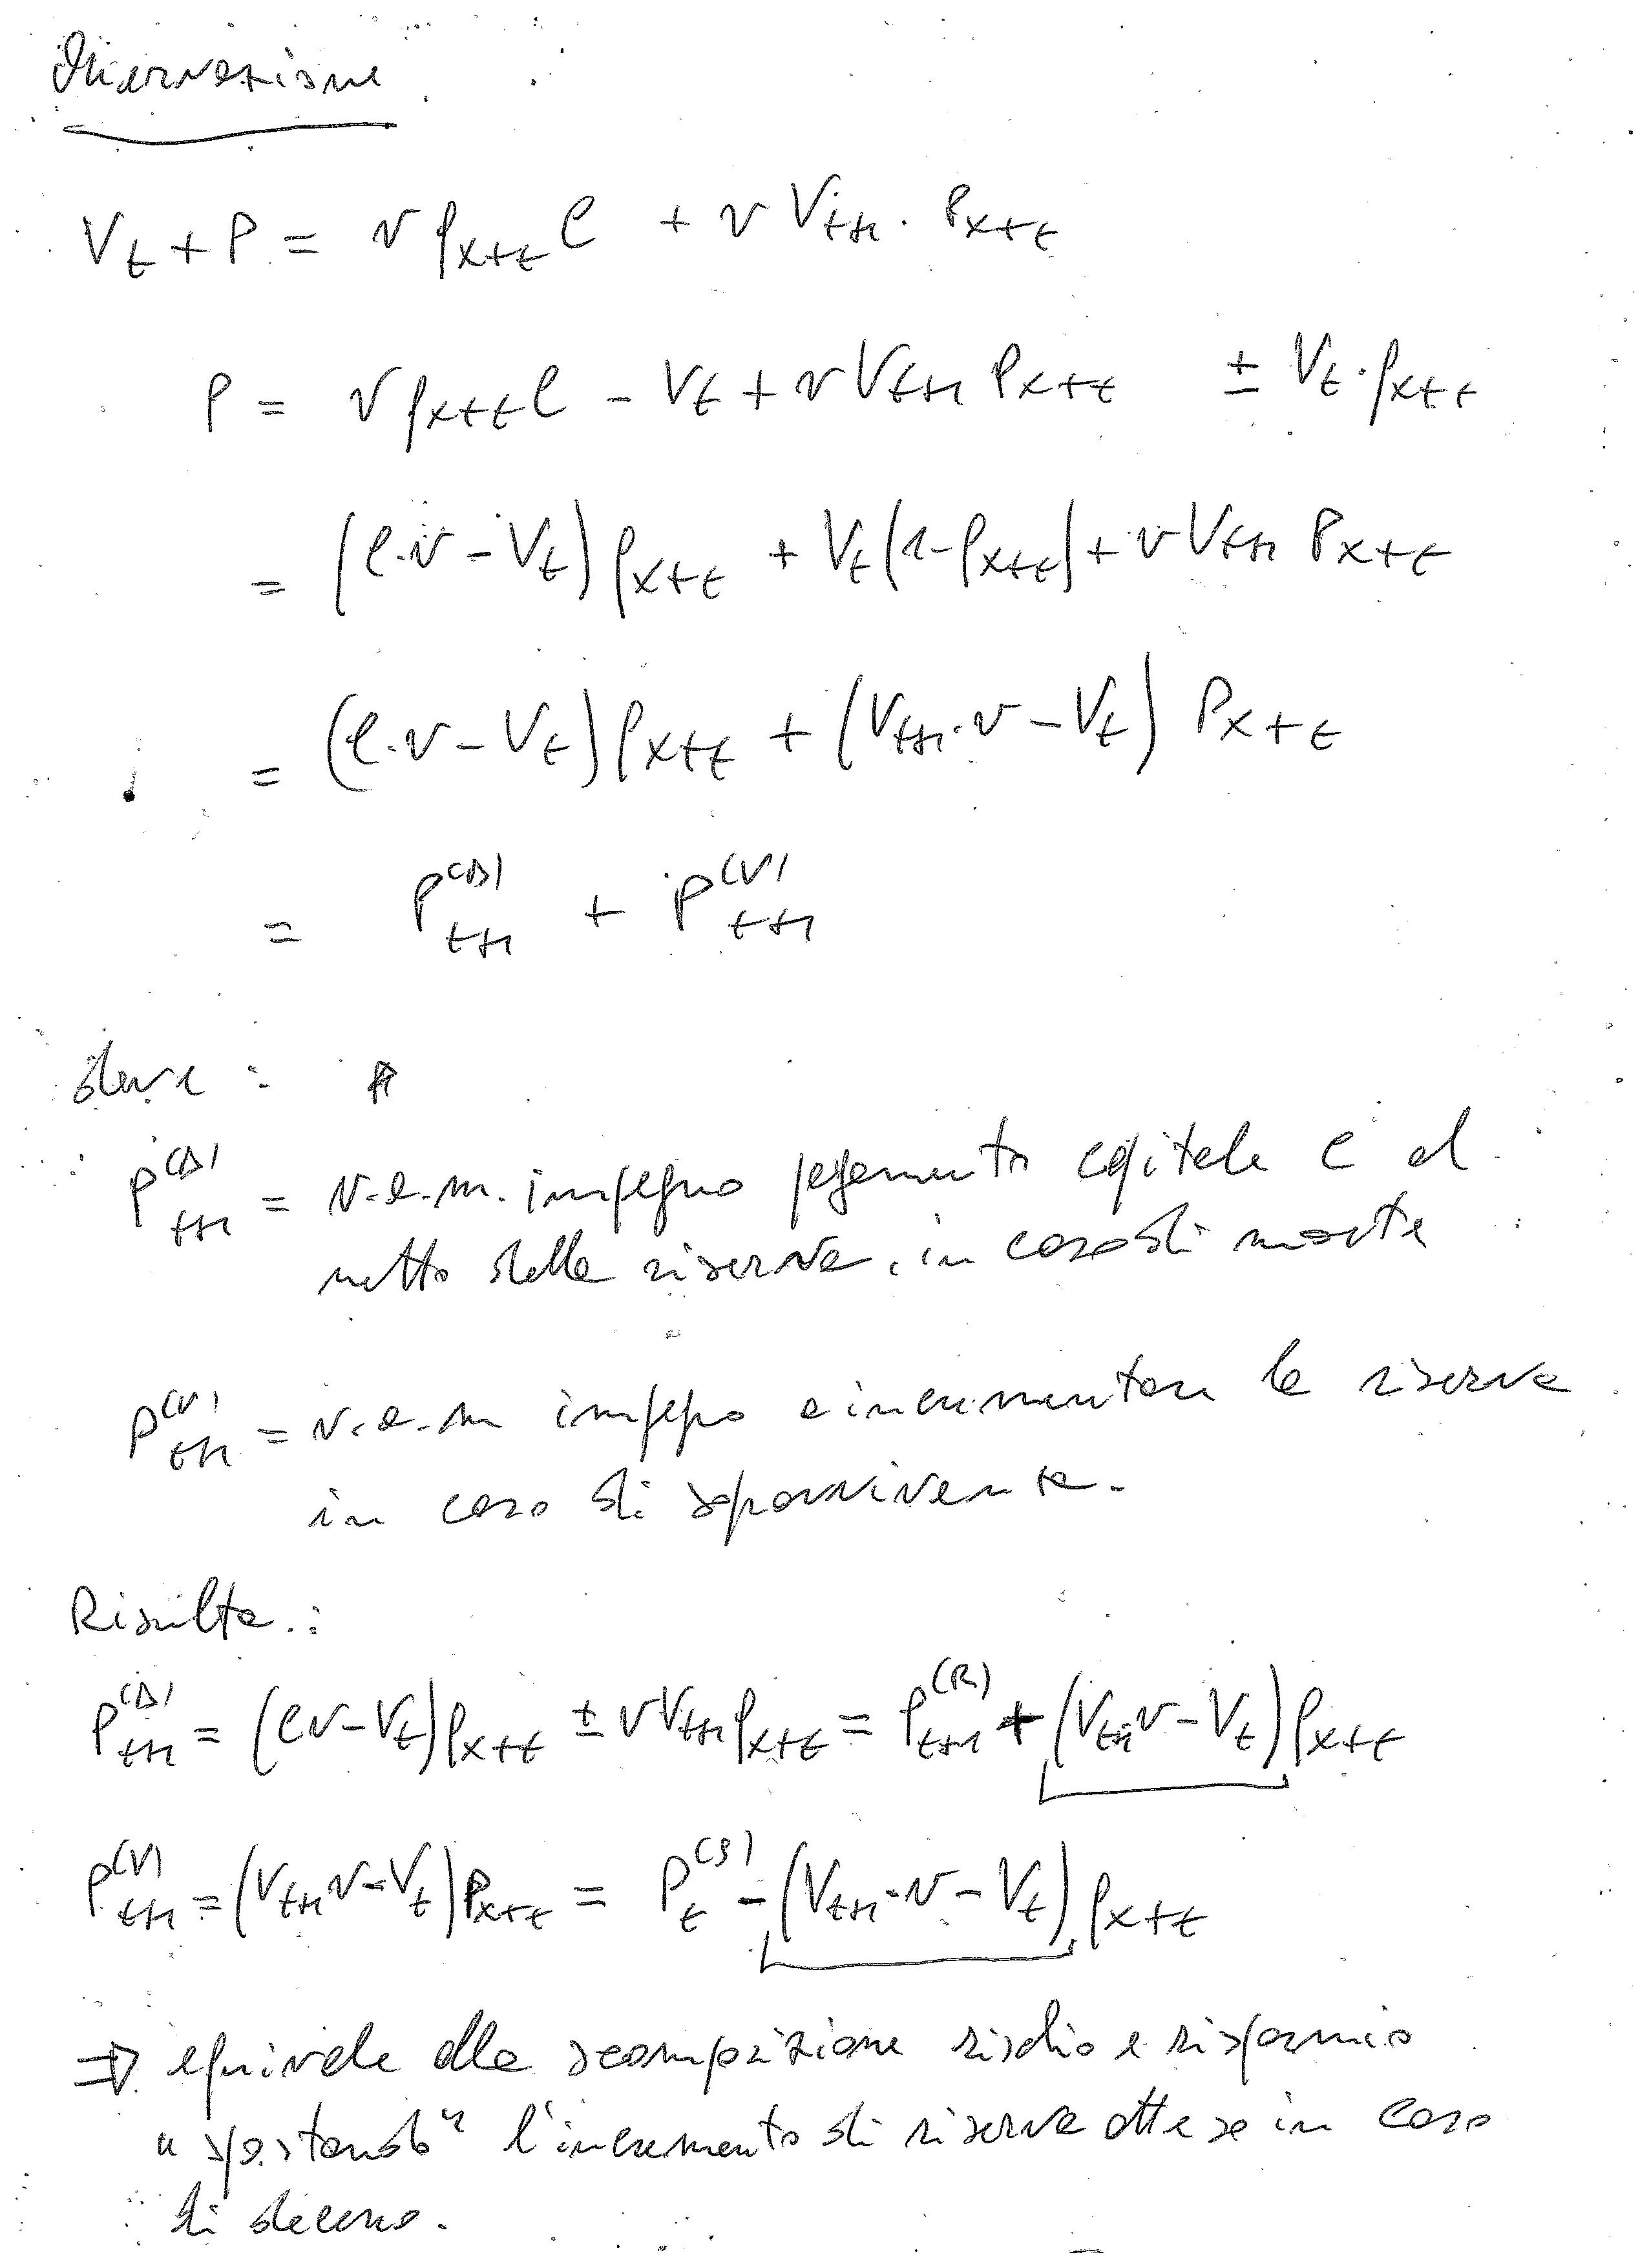 Osservazione
V_t + P = v q_{x+t} C + v V_{t+1} · p_{x+t}
P = v q_{x+t} C - V_t + v V_{t+1} p_{x+t} ± V_t · q_{x+t}
= (C · v - V_t) q_{x+t} + V_t (1 - q_{x+t}) + v V_{t+1} p_{x+t}
= (C · v - V_t) q_{x+t} + (V_{t+1} · v - V_t) p_{x+t}
= P_{t+1}^{(D)} + P_{t+1}^{(V)}
dove :
P_{t+1}^{(D)} = v.a.m. impegno pagamento capitale C al
netto della riserva, in caso di morte
P_{t+1}^{(V)} = v.a.m impegno a incrementare la riserva
in caso di sopravvivenza.
Risulta :
P_{t+1}^{(D)} = (C v - V_t) q_{x+t} ± v V_{t+1} q_{x+t} = P_{t+1}^{(R)} + (V_{t+1} v - V_t) q_{x+t}
P_{t+1}^{(V)} = (V_{t+1} v - V_t) p_{x+t} = P_t^{(S)} - (V_{t+1} · v - V_t) q_{x+t}
⇒ equivale alla scomposizione rischio e risparmio
"spostando" l'incremento di riserva attesa in caso
di decesso.